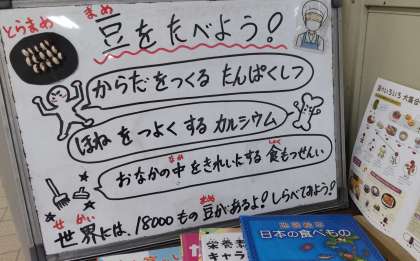 とらまめ
まめ
豆をたべよう!
からだをつくる たんぱくしつ
ほね を つよく する カルシウム
なか しょく
おなかの中をきれいにする 食もつせんい
せ かい まめ
世界には、18000もの 豆があるよ! しらべてみよう!
栄養素
キャラ
日本の食べもの